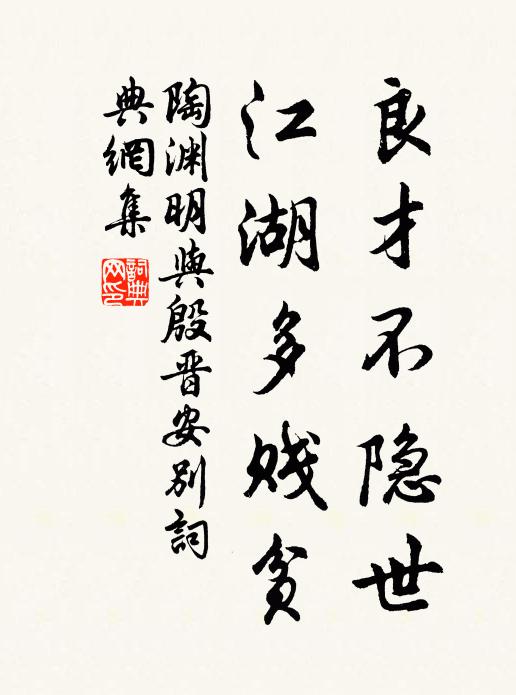 良才不隐世
江湖多贱贫
陶渊明與殷晋安别詞
典網集
詞典
网印